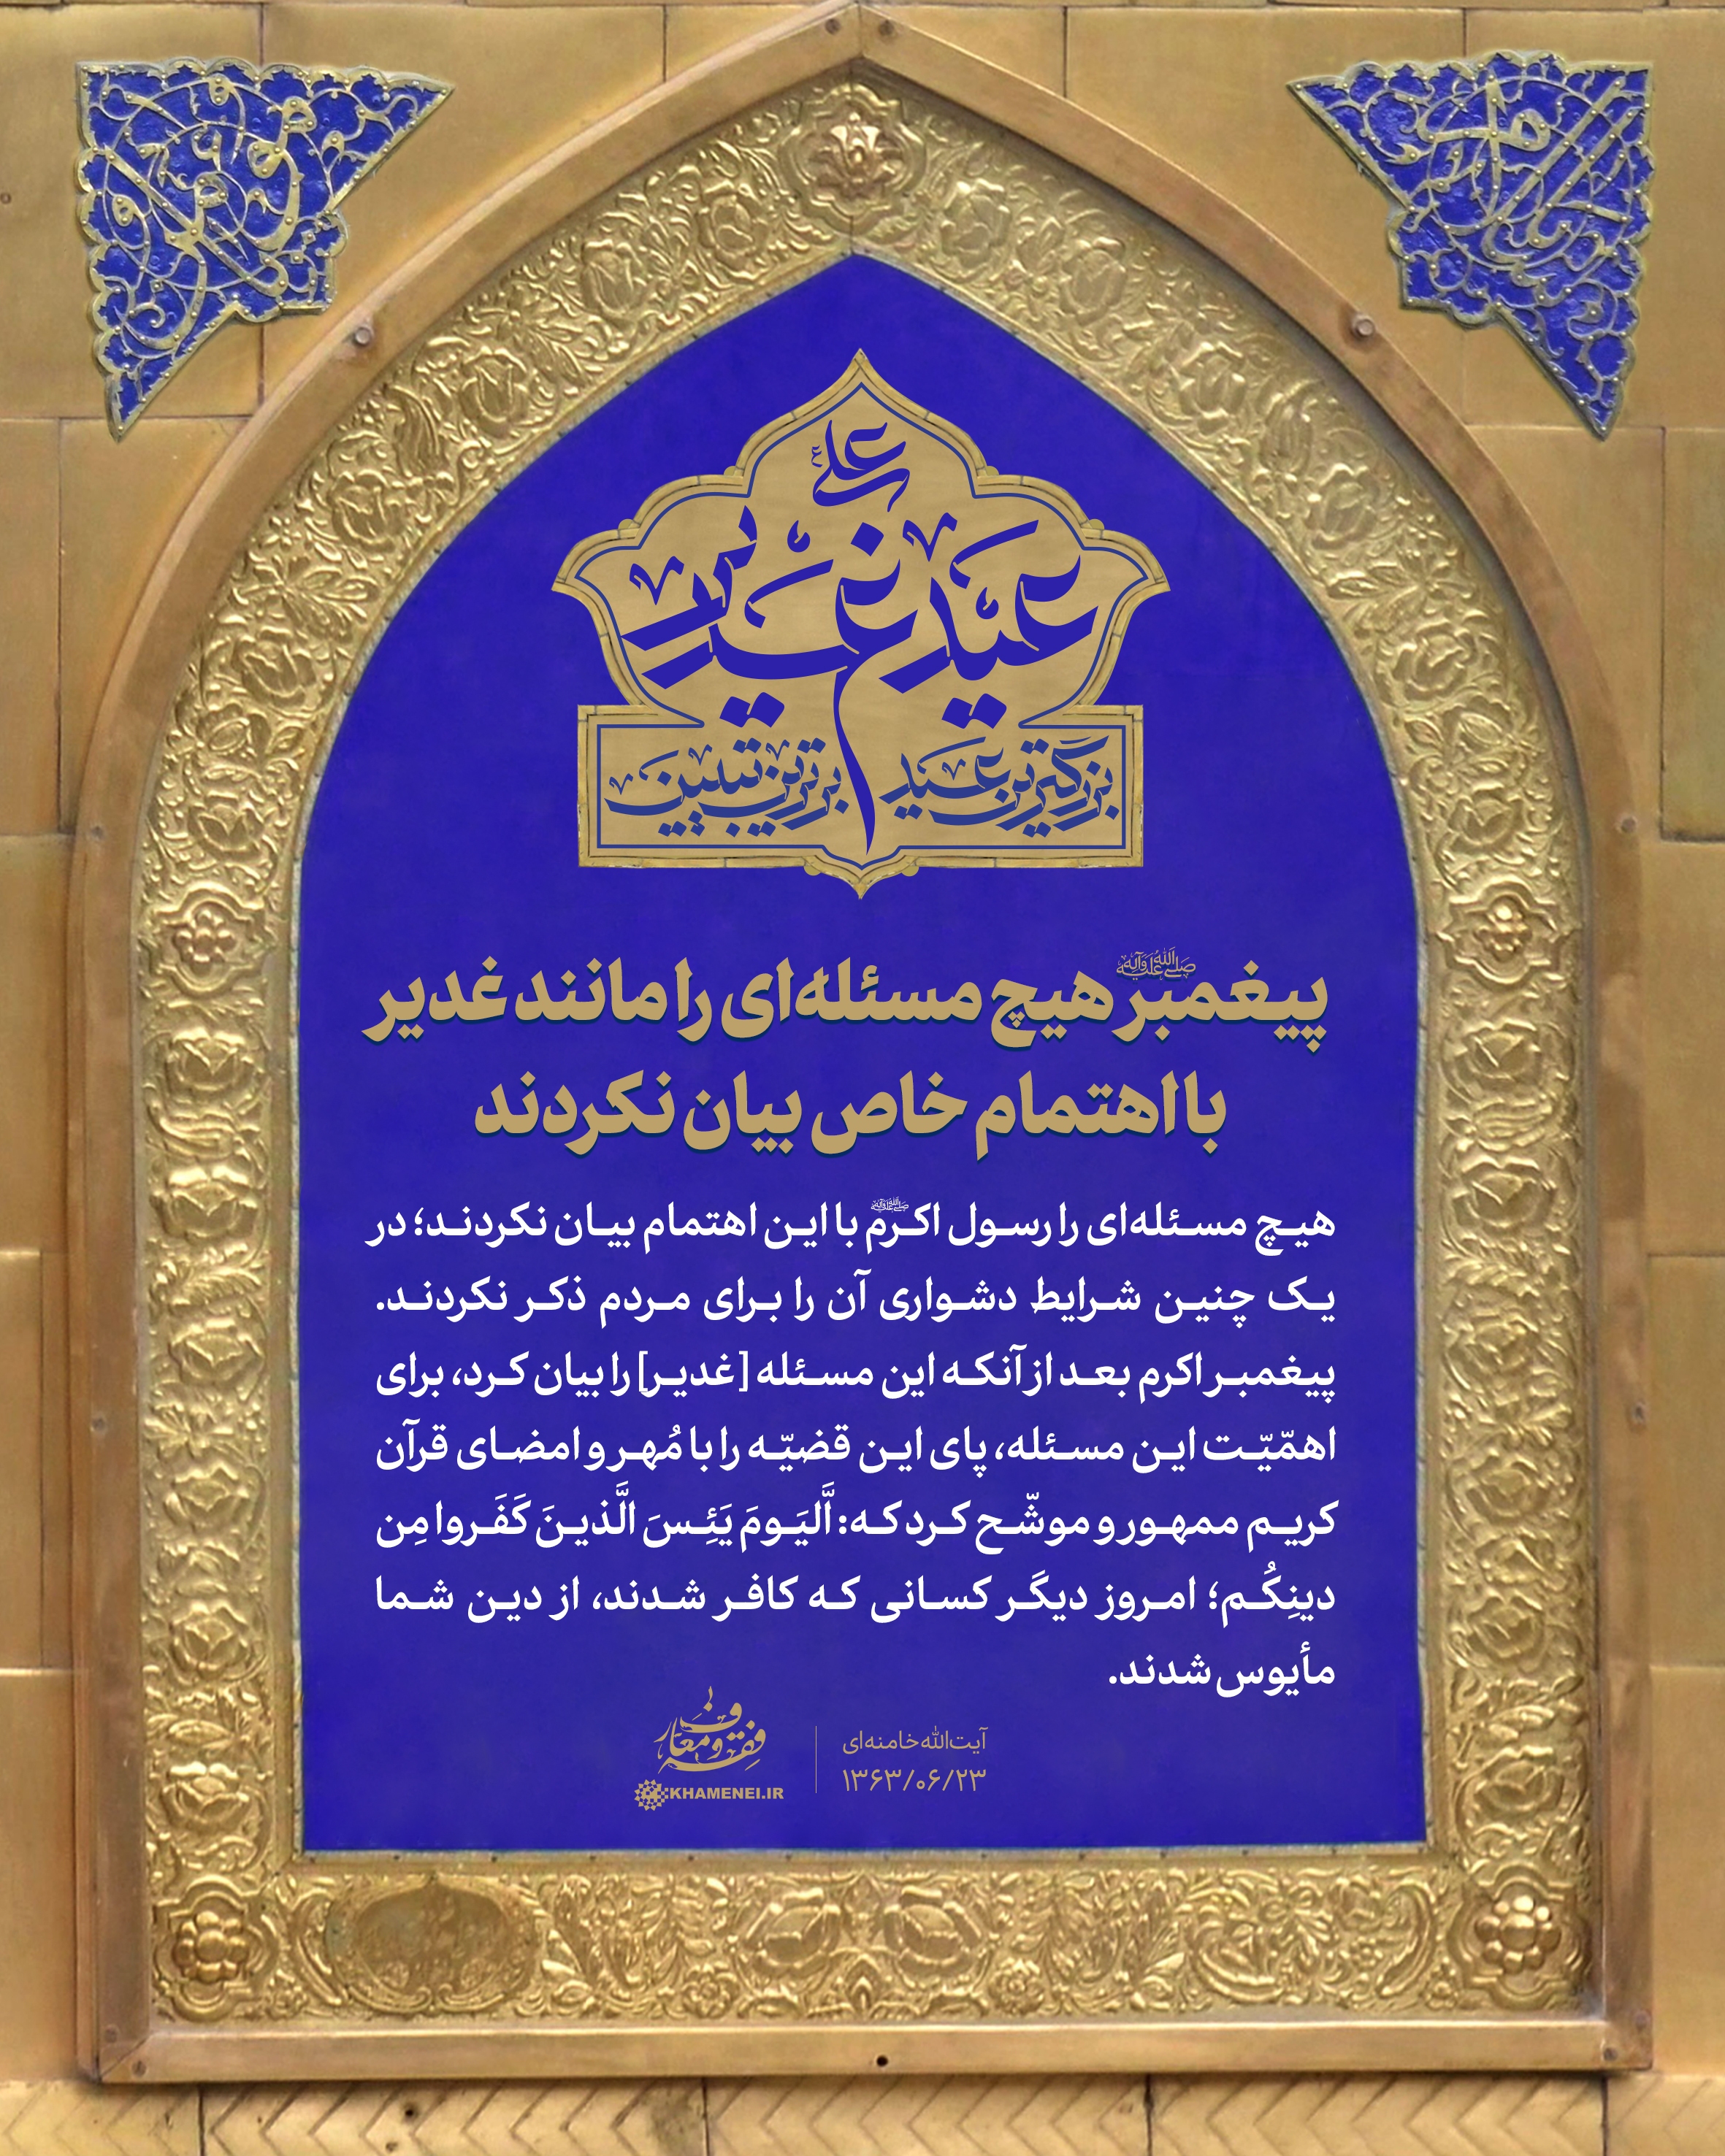 علی ع
عید غدیر
بزرگترین عید برترین تبیین
پیغمبر صلی‌الله‌علیه‌وآله هیچ مسئله‌ای را مانند غدیر
با اهتمام خاص بیان نکردند
هیچ مسئله‌ای را رسول اکرم صلی‌الله‌علیه‌وآله با این اهتمام بیان نکردند؛ در
یک چنین شرایط دشواری آن را برای مردم ذکر نکردند.
پیغمبر اکرم بعد از آنکه این مسئله [غدیر] را بیان کرد، برای
اهمّیّت این مسئله، پای این قضیّه را با مُهر و امضای قرآن
کریم ممهور و موشّح کرد که: اَلیَومَ یَئِسَ الَّذینَ کَفَروا مِن
دینِکُم؛ امروز دیگر کسانی که کافر شدند، از دین شما
مأیوس شدند.
آیت‌الله خامنه‌ای
۱۳۶۳/۰۶/۲۳
فقه و معارف
KHAMENEI.IR